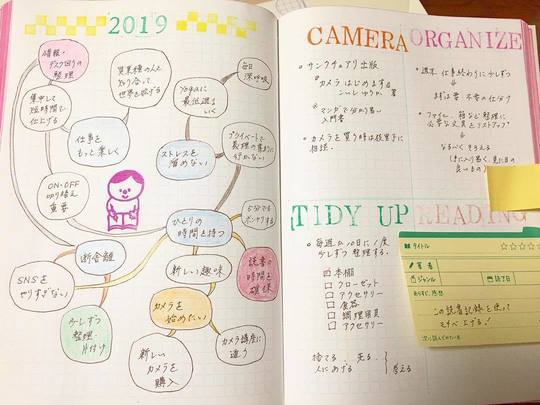 2019
情報・
デスク回りの
整理
集中して
短時間で
仕上げる
仕事を
もっと楽しく
異業種の人と
知り合って
世界を拡げる
yogaに
最低週1
いく
毎日
深呼吸
ストレスを
溜めない
プライベートで
義理の集まりに
行かない
ON・OFF
切り替え
重要
ひとりの
時間を持つ
5分でも
ボンヤリする
断捨離
新しい趣味
読書の
時間を
確保
SNSを
やりすぎない
少しずつ
整理
片付け
カメラを
始めたい
新しい
カメラを
購入
カメラ講座に
通う
CAMERA
・サンクチュアリ出版
カメラはじめます
こいしゆうか 著
マンガで分かり易い
入門書
・カメラを買う時は
相談。
ORGANIZE
・週末 仕事終わりに少しずつ
まずは要・不要の仕分け
・ファイル、箱など整理に
必要な文具をリストアップ
なるべくそろえる
(気に入り働く、見た目の
良いもの)
TIDY UP
・毎週or10日に1度
少しずつ整理する。
本棚
クローゼット
アクセサリー
食器
調理用具
アクセサリー
捨てる 売る
人にあげる
考える
READING
タイトル
著者
ジャンル
読了日
あらすじ、感想
この読書記録を使って
モチベ上げる!
次に読んでみたい本